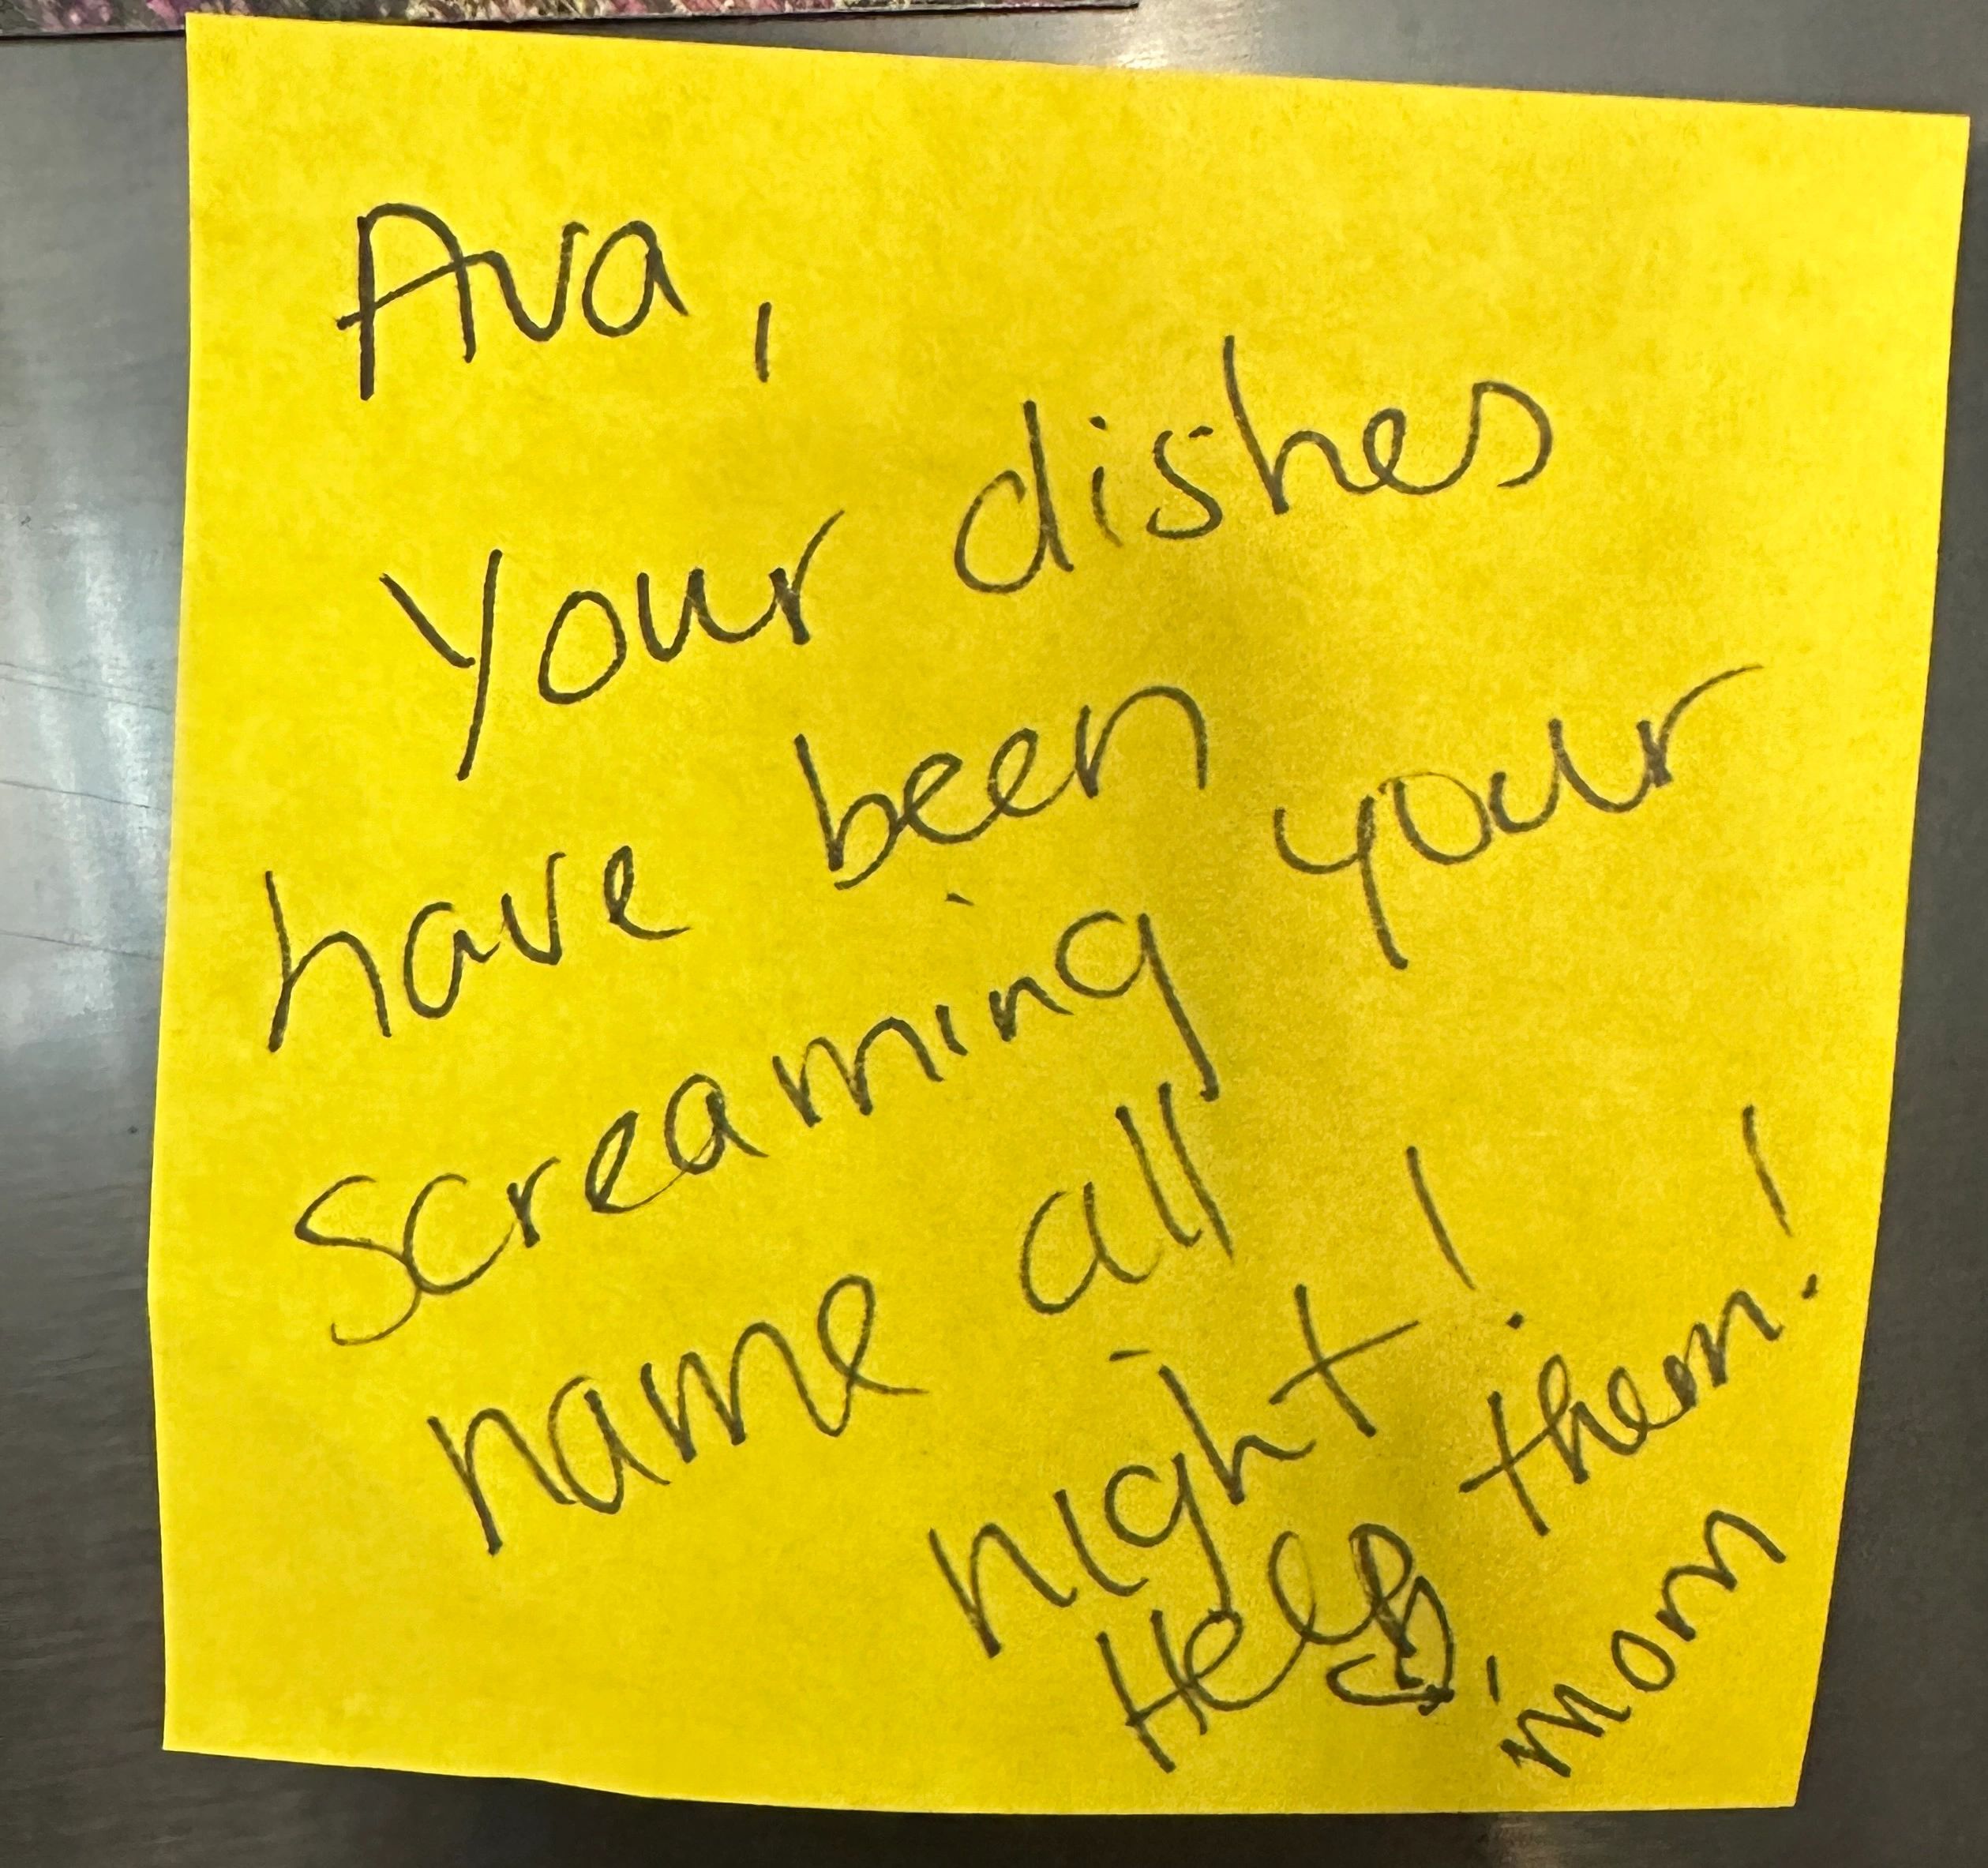 Ava,
Your dishes
have been
screaming your
name all
night!
Help them!
mom